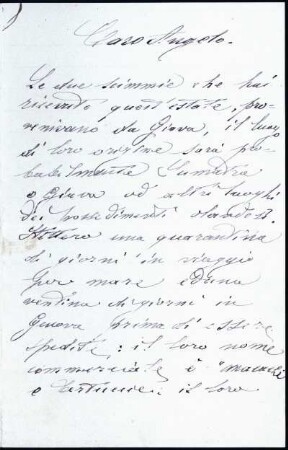 Caro Angelo.
Le due scimmie che hai
ricevuto quest'estate, pro-
venivano da Giava, il luogo
di loro origine sarà pro-
babilmente Sumatra
o Giava od altri luoghi
dei possedimenti olandesi.
Stettero una quarantina
di giorni in viaggio
per mare ed una
ventina di giorni in
Genova prima di essere
spedite; il loro nome
commerciale è
o il loro